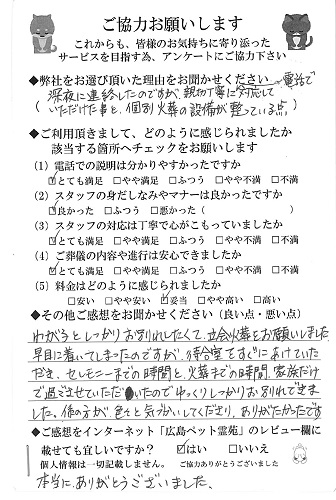 ご協力お願いします
これからも、皆様のお気持ちに寄り添った
サービスを目指す為、アンケートにご協力下さい
◆弊社をお選び頂いた理由をお聞かせください 電話で
深夜に連絡したのですが、親切丁寧に対応して
(いただけた事と、個別火葬の設備が整っている点)
◆ご利用頂きまして、どのように感じられましたか
該当する箇所へチェックをお願いします
(1) 電話での説明は分かりやすかったですか
☑とても満足 □やや満足 □ふつう □やや不満 □不満
(2) スタッフの身だしなみやマナーは良かったですか
☑良かった □ふつう □悪かった( )
(3) スタッフの対応は丁寧で心がこもっていましたか
☑とても満足 □やや満足 □ふつう □やや不満 □不満
(4) ご葬儀の内容や進行は安心できましたか
☑とても満足 □やや満足 □ふつう □やや不満 □不満
(5) 料金はどのように感じられましたか
□安い □やや安い ☑妥当 □やや高い □高い
◆その他ご感想をお聞かせください(良い点・悪い点)
わがうとしっかりお別れしたくて、立会火葬をお願いしました
早目に着いてしまったのですが、待合室をすぐにあけていた
だき、セレモニーまでの時間と、火葬までの時間、家族だけ
で過ごさせていただいたのでゆっくりしっかりお別れできま
した。他の子が、色々と気づかいしてくださり、ありがたかったです
◆ご感想をインターネット「広島ペット霊苑」のレビュー欄に
載せても宜しいですか? ☑はい □いいえ
個人情報は一切記載しません。 ご協力ありがとうございました
本当に、ありがとうございました。